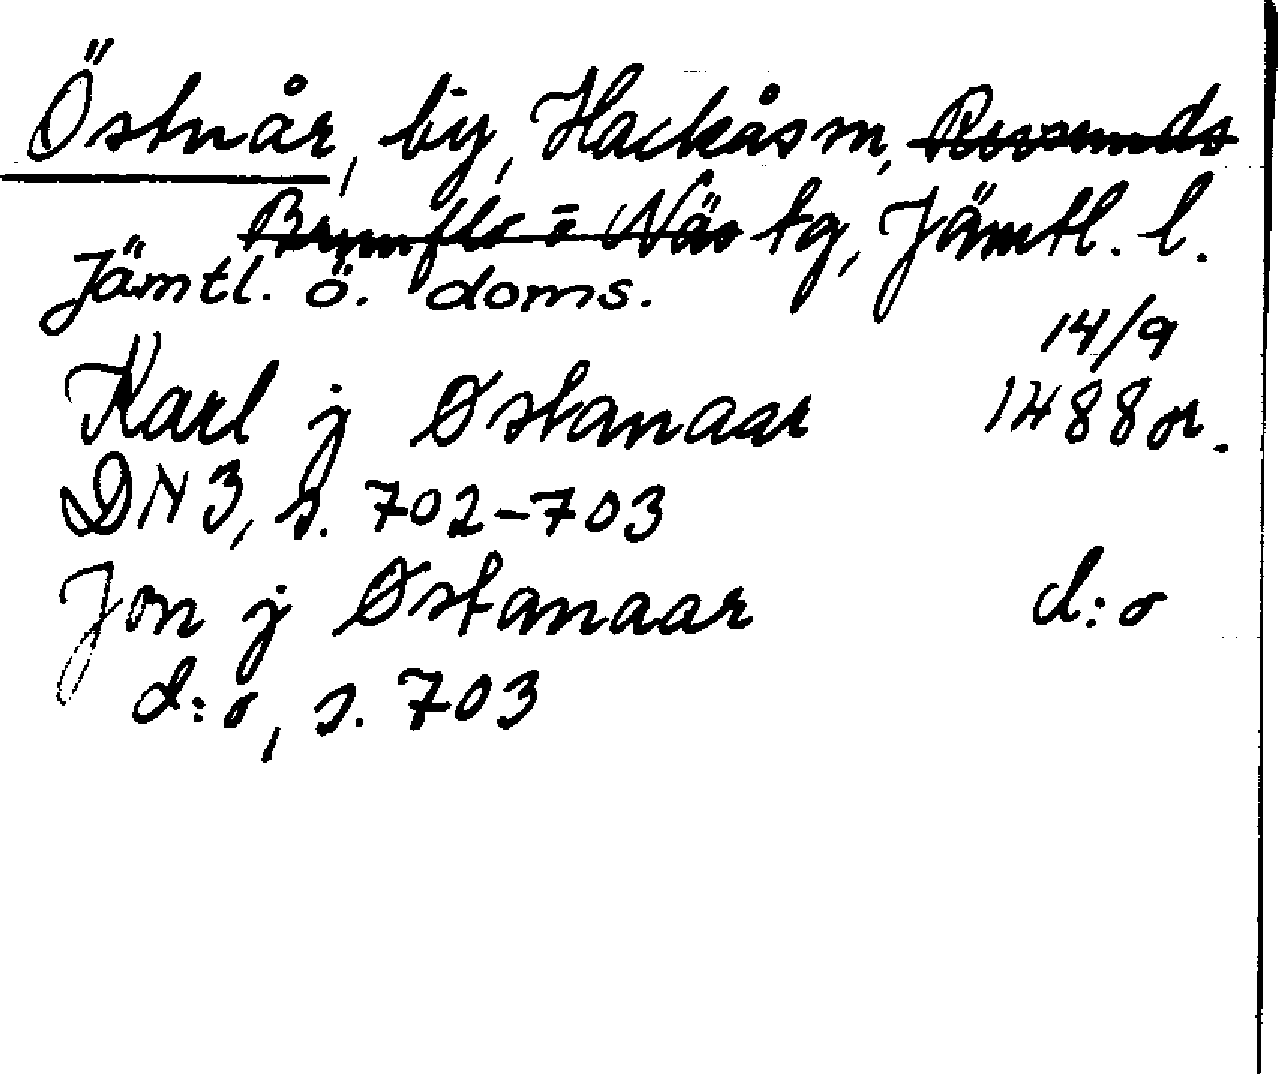 Östnår, by, Hackås sn, Revsunds
Brunflo o Näs tg, Jämtl. l.
Jämtl. ö. doms.
14/9
Karl j Østanaar 1488 or.
DN 3, s. 702-703
Jon j Østanaar d:o
d:o, s. 703